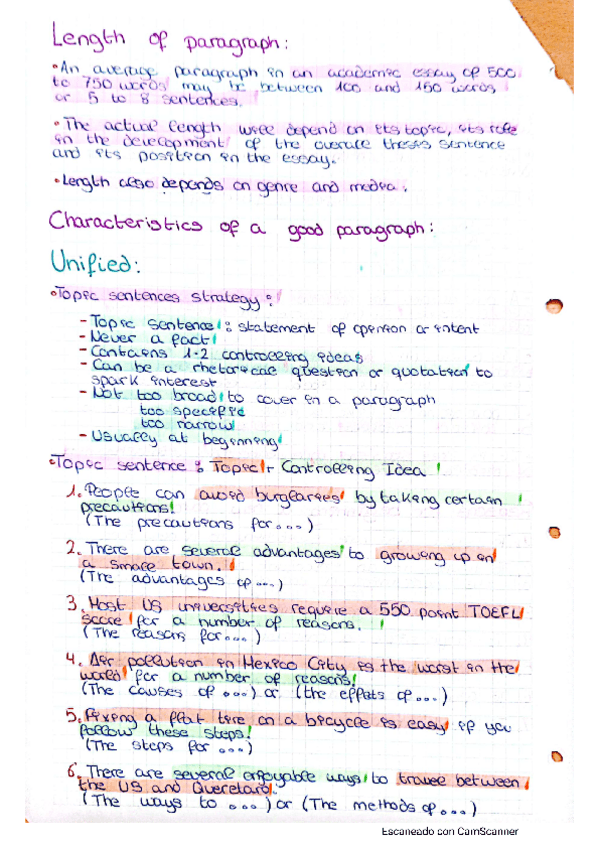 Length of paragraph:
•An average paragraph in an academic essay of 500
to 750 words may be between 100 and 150 words
or 5 to 8 sentences.
•The actual length will depend on its topic, its role
in the development of the overall thesis sentence
and its position in the essay.
•Length also depends on genre and media.
Characteristics of a good paragraph:
Unified:
•Topic sentences strategy:
- Topic sentence: statement of opinion or intent
- Never a fact
- Contains 1-2 controlling ideas
- Can be a rhetorical question or quotation to
spark interest
- Not too broad to cover in a paragraph
too specific
too narrow
- Usually at beginning
•Topic sentence: Topic + Controlling Idea
1. People can avoid burglaries by taking certain
precautions.
(The precautions for...)
2. There are several advantages to growing up in
a small town.
(The advantages of...)
3. Most US universities require a 550 point TOEFL
score for a number of reasons.
(The reasons for...)
4. Air pollution in Mexico City is the worst in the
world for a number of reasons.
(The causes of ...) or (the effects of...)
5. Fixing a flat tire on a bicycle is easy if you
follow these steps.
(The steps for ...)
6. There are several enjoyable ways to travel between
the US and Queretaro.
(The ways to ...) or (The methods of...)
Escaneado con CamScanner